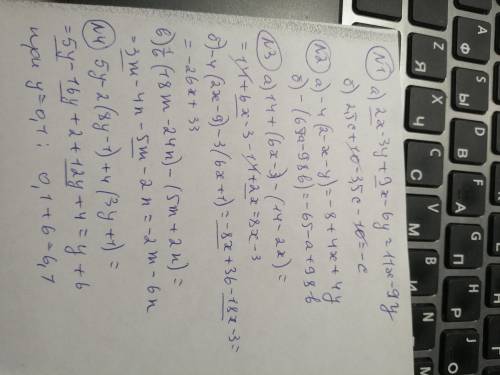 N1 а) 2x-3y+9x-6y=11x-9y
б) 25c+10-35c-10=-c
N2 а) -4(2-x-y)=-8+4x+4y
б) -(65a-98b)=-65a+98b
N3 а) 14+(6x-3)-(14-2x)=
=14+6x-3-14+2x=8x-3
б) -4(2x-9)-3(6x+1)=-8x+36-18x-3=
=-26x+33
в) 1/6(18m-24n)-(5m+2n)=
=3m-4n-5m-2n=-2m-6n
N4 5y-2(8y-1)+4(3y+1)=
=5y-16y+2+12y+4=y+6
при y=0,1: 0,1+6=6,1